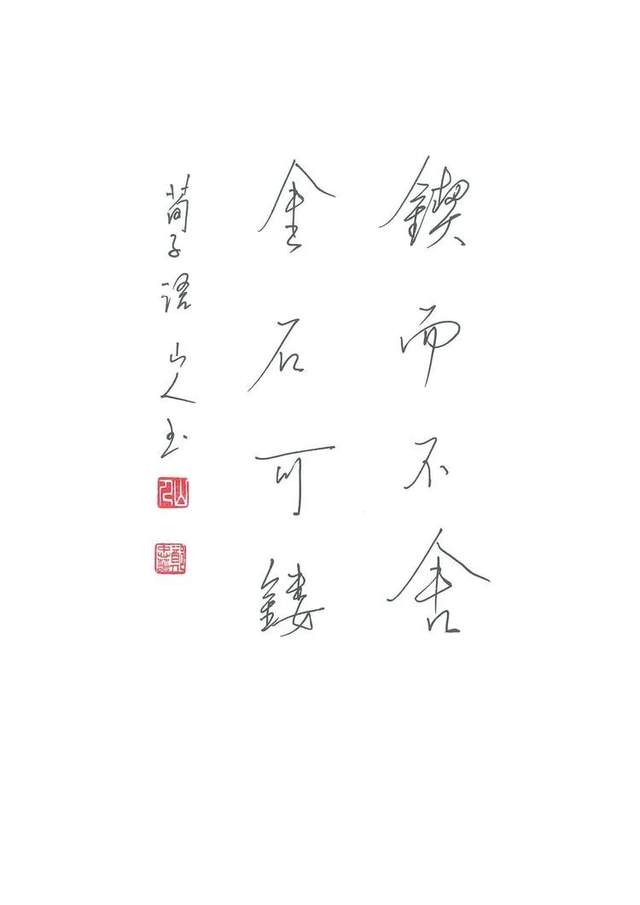 锲而不舍
金石可镂
荀子语 山人书
山人